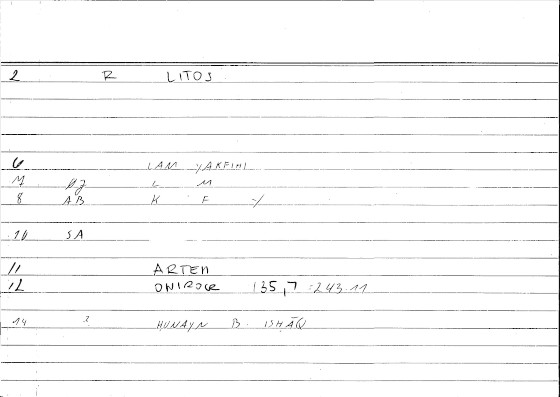 2 R LITOS
6 LAM YAKFIHI
7 L M
8 AB K F Y
10 SA
11 ARTEM
12 ONIROCR 135,7 = 243.11
14 2 HUNAYN B. ISḤĀQ